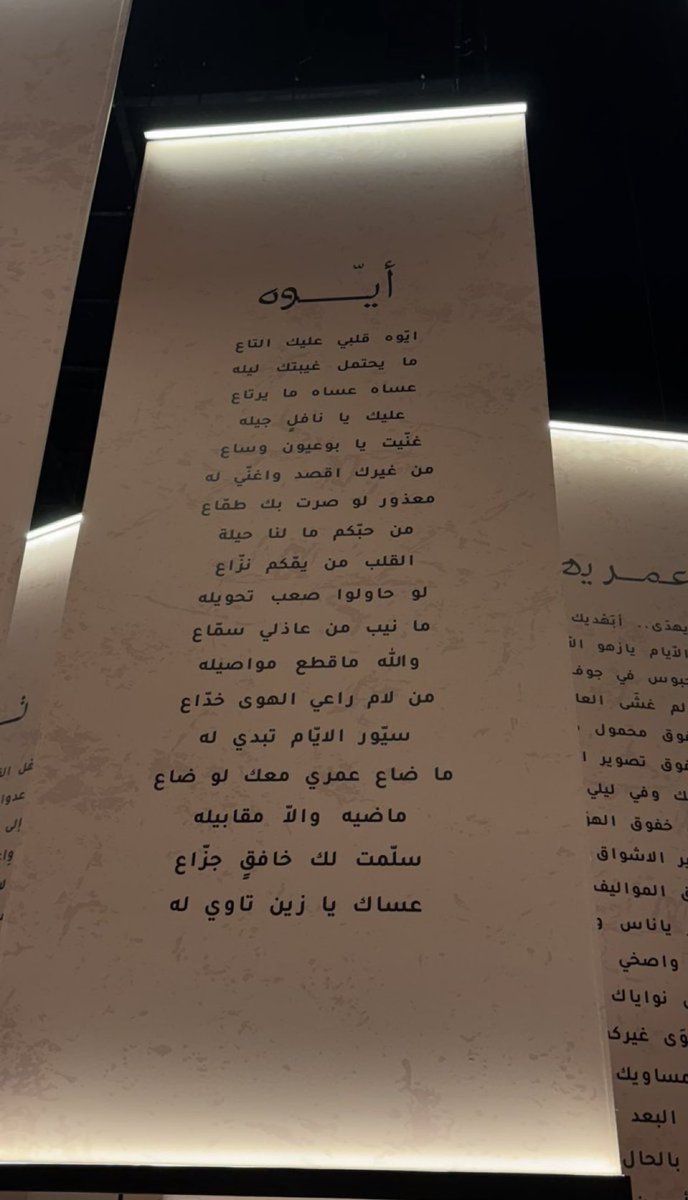 أيّـــوه
ايّوه قلبي عليك التاع
ما يحتمل غيبتك ليله
عساه عساه ما يرتاع
عليك يا نافلٍ جيله
غنّيت يا بوعيون وساع
من غيرك اقصد واغنّي له
معذور لو صرت بك طمّاع
من حبّكم ما لنا حيلة
القلب من يمّكم نزّاع
لو حاولوا صعب تحويله
ما نيب من عاذلي سمّاع
والله ماقطع مواصيله
من لام راعي الهوى خدّاع
سيّور الايّام تبدي له
ما ضاع عمري معك لو ضاع
ماضيه والاّ مقابيله
سلّمت لك خافقٍ جزّاع
عساك يا زين تاوي له
عمـريه
يهدَى.. أبَهْديك
الأيام يازهو
محبوس في جوف
لم غشَى
فوق محمول
فوق تصوير
وفي ليلي
خفوق
الاشواق
المواليف
ياناس
واصخي
نواياك
غيرك
مساويك
البعد
بالحال
عدوا
إلى